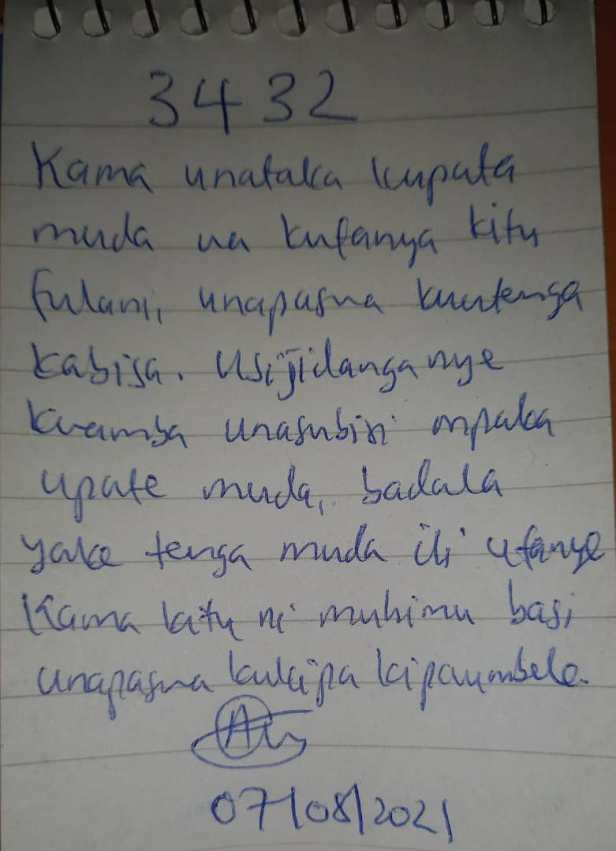 3432
Kama unataka kupata
muda wa kufanya kitu
fulani, unapaswa kuutenga
kabisa. Usijidanganye
kwamba unasubiri mpaka
upate muda, badala
yake tenga muda ili ufanye
Kama kitu ni muhimu basi
unapaswa kukipa kipaumbele.
07/08/2021